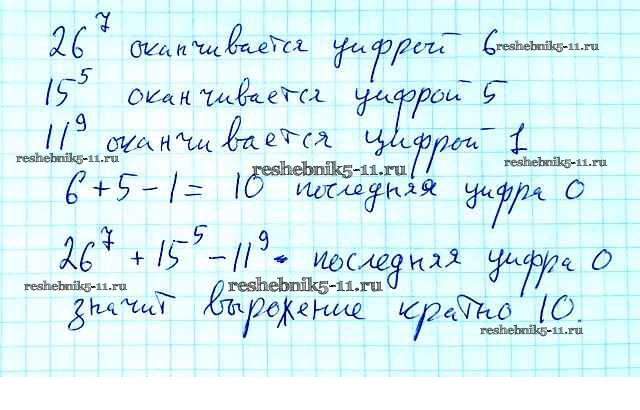 26⁷ оканчивается цифрой 6
reshebnik5-11.ru
15⁵ оканчивается цифрой 5
11⁹ оканчивается цифрой 1
reshebnik5-11.ru
reshebnik5-11.ru
6 + 5 - 1 = 10 последняя цифра 0
26⁷ + 15⁵ - 11⁹ - последняя цифра 0
reshebnik5-11.ru
reshebnik5-11.ru
значит выражение кратно 10.
reshebnik5-11.ru